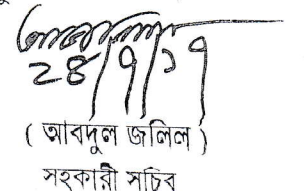 ২৪/৭/১৭
( আবদুল জলিল )
সহকারী সচিব